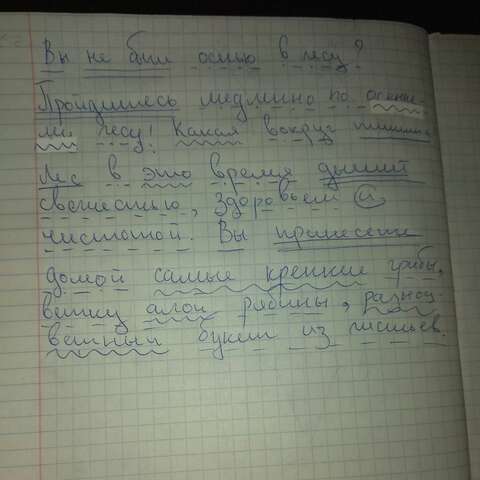 Вы не были осенью в лесу?
Пройдитесь медленно по осенне-
му лесу! Какая вокруг тишина
Лес в это время дышит
свежестью, здоровьем и
чистотой. Вы принесёте
домой самые крепкие грибы,
ветку алой рябины, разноц-
ветный букет из листьев.